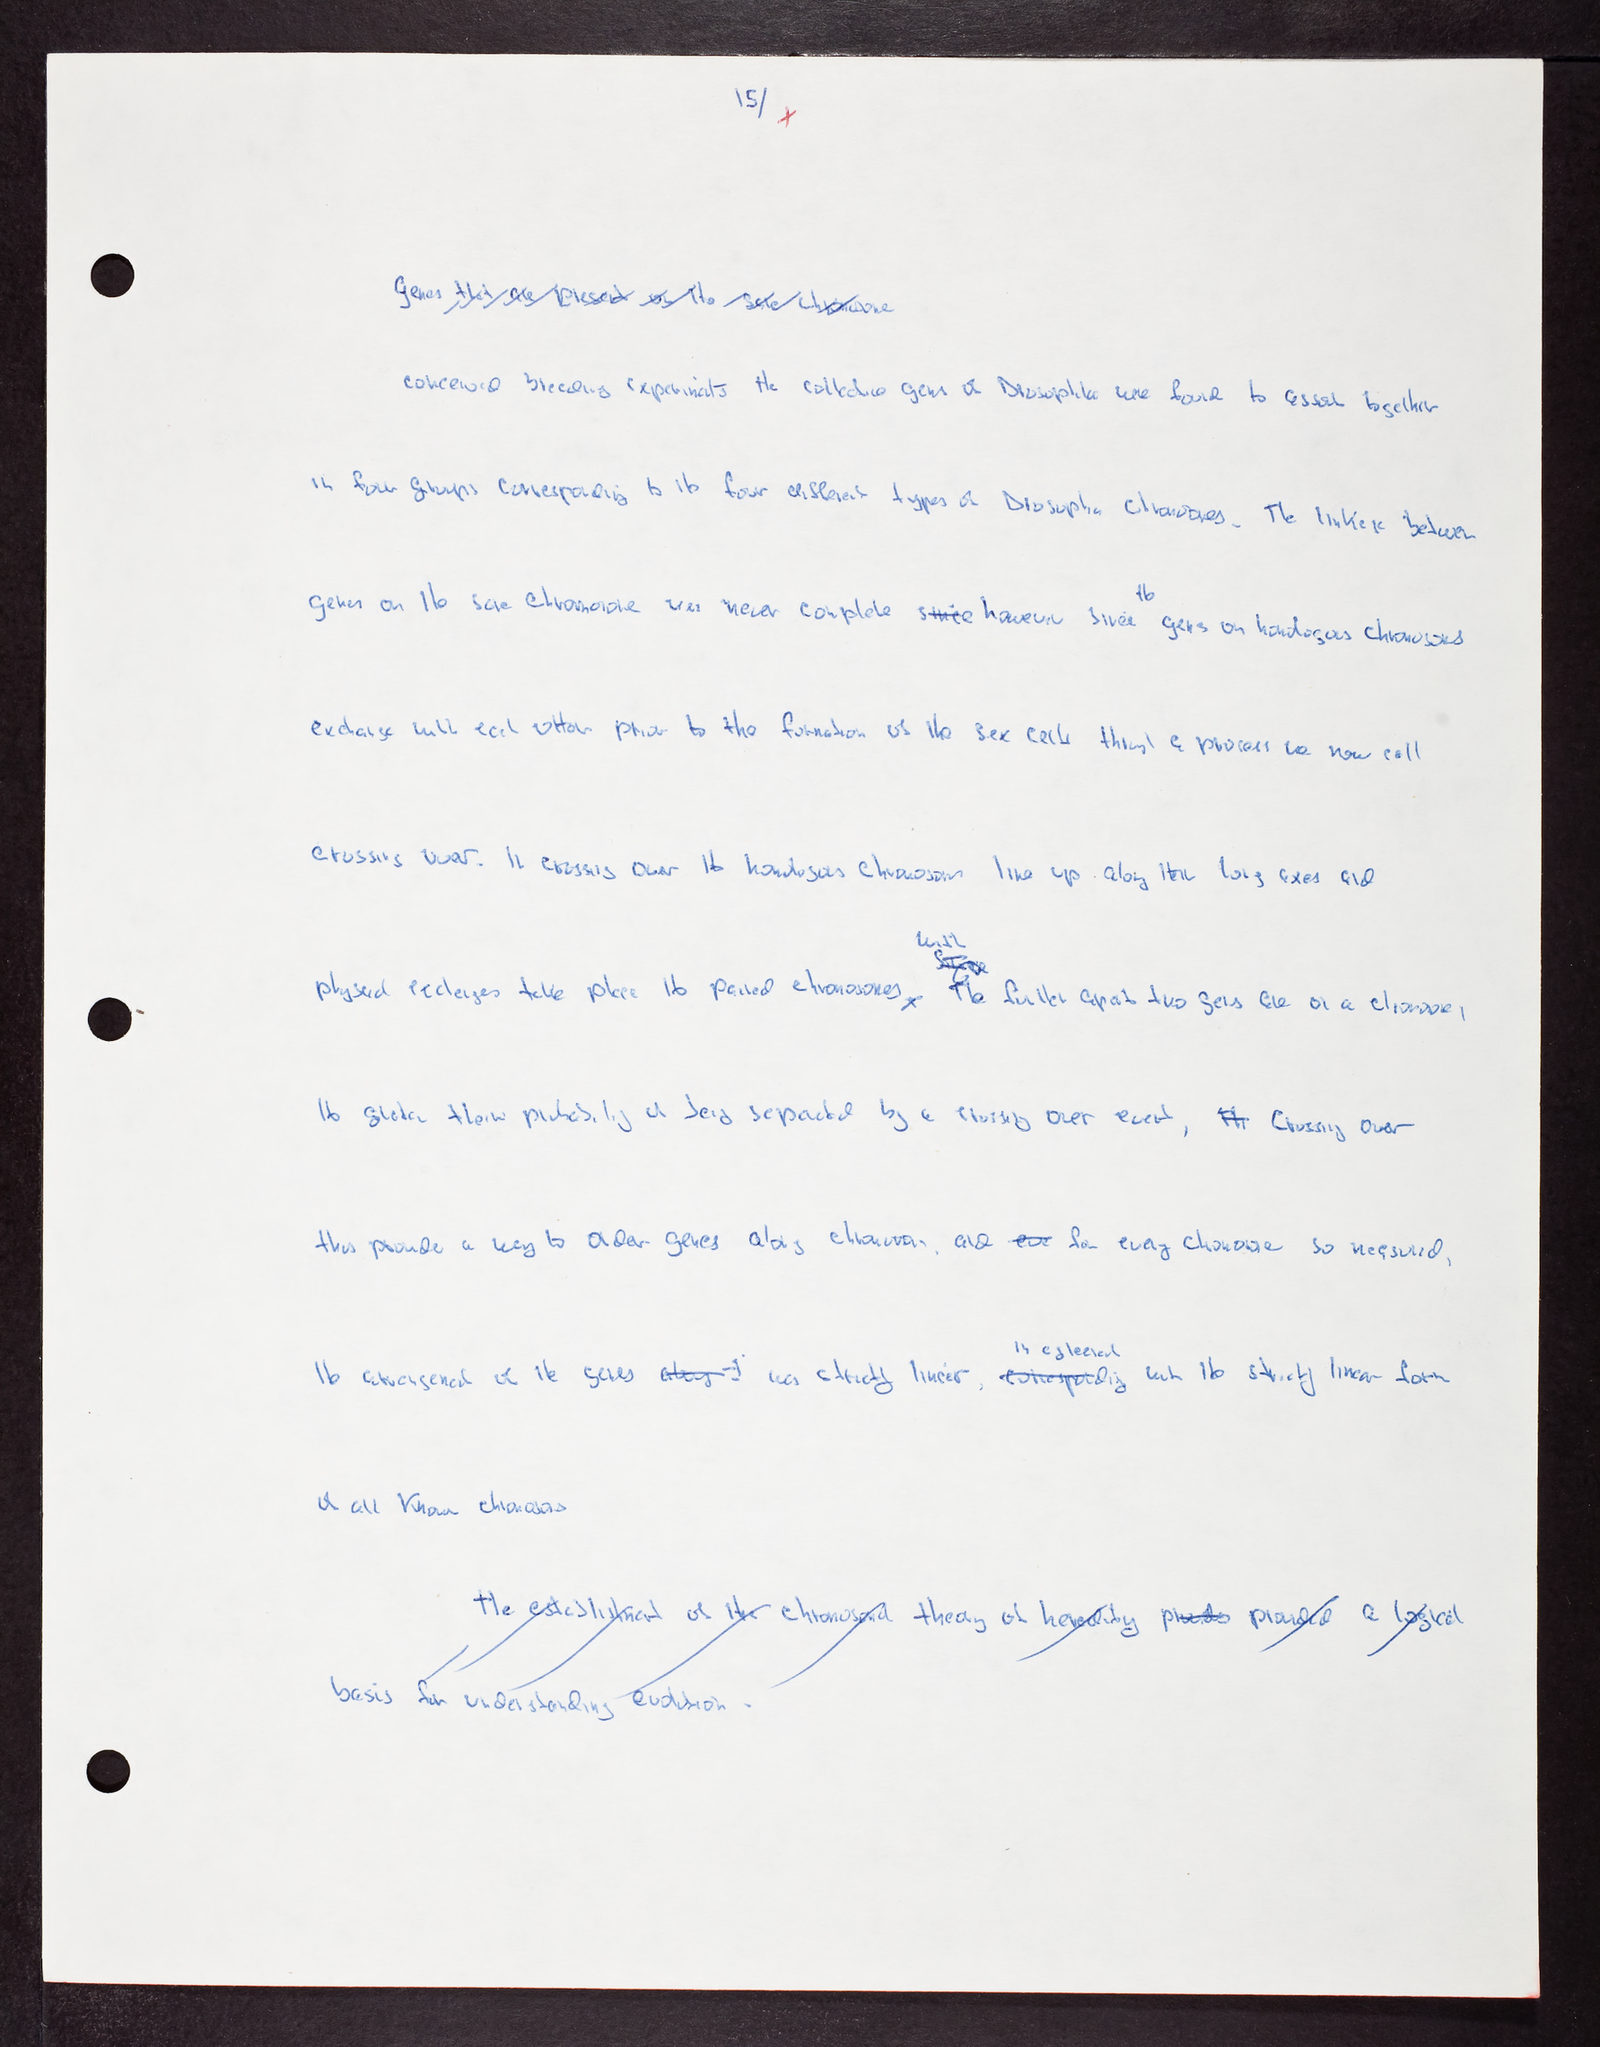 15/ x
Genes that are present on the same chromosome
concerned breeding experiments the collective genes of Drosophila were found to assort together
in four groups corresponding to the four different types of Drosophila chromosomes. The linkage between
genes on the same chromosome was never complete since however since the genes on homologous chromosomes
exchange with each other prior to the formation of the sex cells through a process we now call
crossing over. In crossing over the homologous chromosomes line up along their long axes and
physical exchanges take place the paired chromosomes, with The further apart two genes are on a chromosome,
the greater their probability of being separated by a crossing over event, Crossing over
thus provide a way to order genes along chromosomes, and for every chromosome so measured,
the arrangement of the genes along was strictly linear, corresponding in agreement with the strictly linear form
of all known chromosomes
The establishment of the chromosomal theory of heredity provided a logical
basis for understanding evolution.